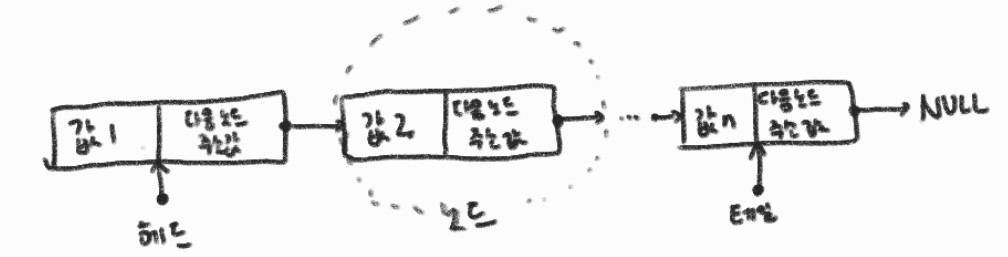 값1
다음노드
주솟값
값2
다음노드
주솟값
...
값n
다음노드
주솟값
NULL
헤드
노드
테일